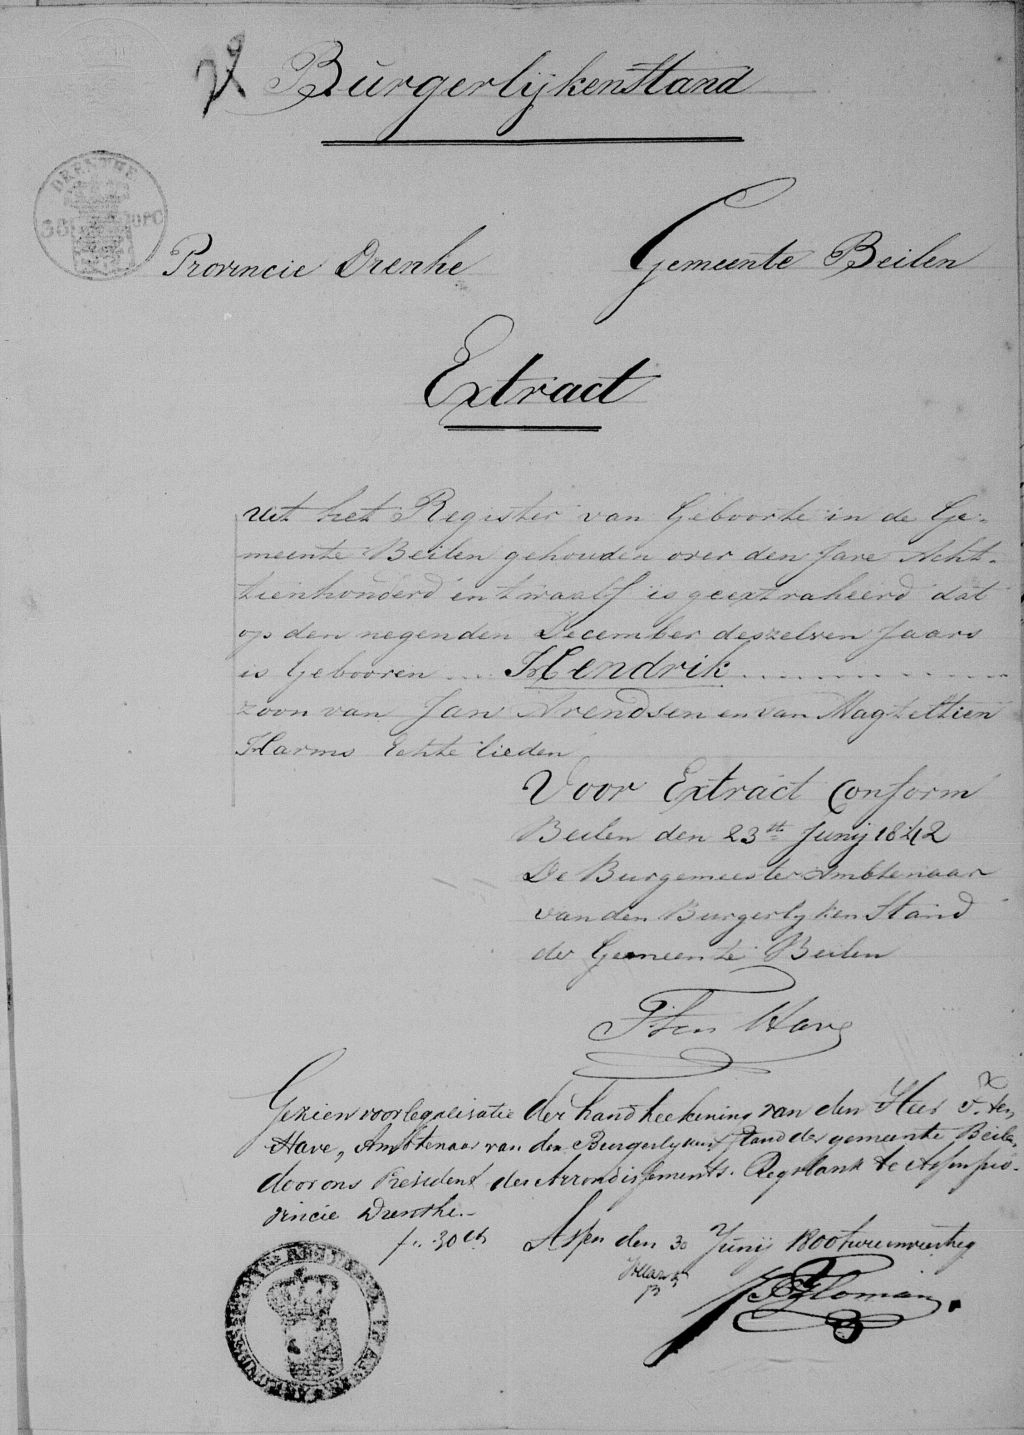 Burgerlijkenstand
DRENTHE
Provincie Drenthe Gemeente Beilen
Extract
Uit het Register van Geboorte in de Ge-
meente Beilen gehouden over den Jare Acht-
tienhonderd en twaalf is geextraheerd dat
op den negenden December deszelven Jaars
is Gebooren .... Hendrik ............
zoon van Jan Arendsen en van Magteltien
Harms Echte lieden
Voor Extract Conform
Beilen den 23ste Junij 1842
De Burgemeester Ambtenaar
van den Burgerlyken Stand
der Gemeente Beilen
F ten Have
Gezien voor legalisatie der handteekening van den Heer F. ten
Have, Ambtenaar van den Burgerlyken Stand der gemeente Beilen
door ons President der Arrondissements Regtbank te Assen pro-
vincie Drenthe.-
f. 30 ct Assen den 30 Junij 1800 tweeenveertig